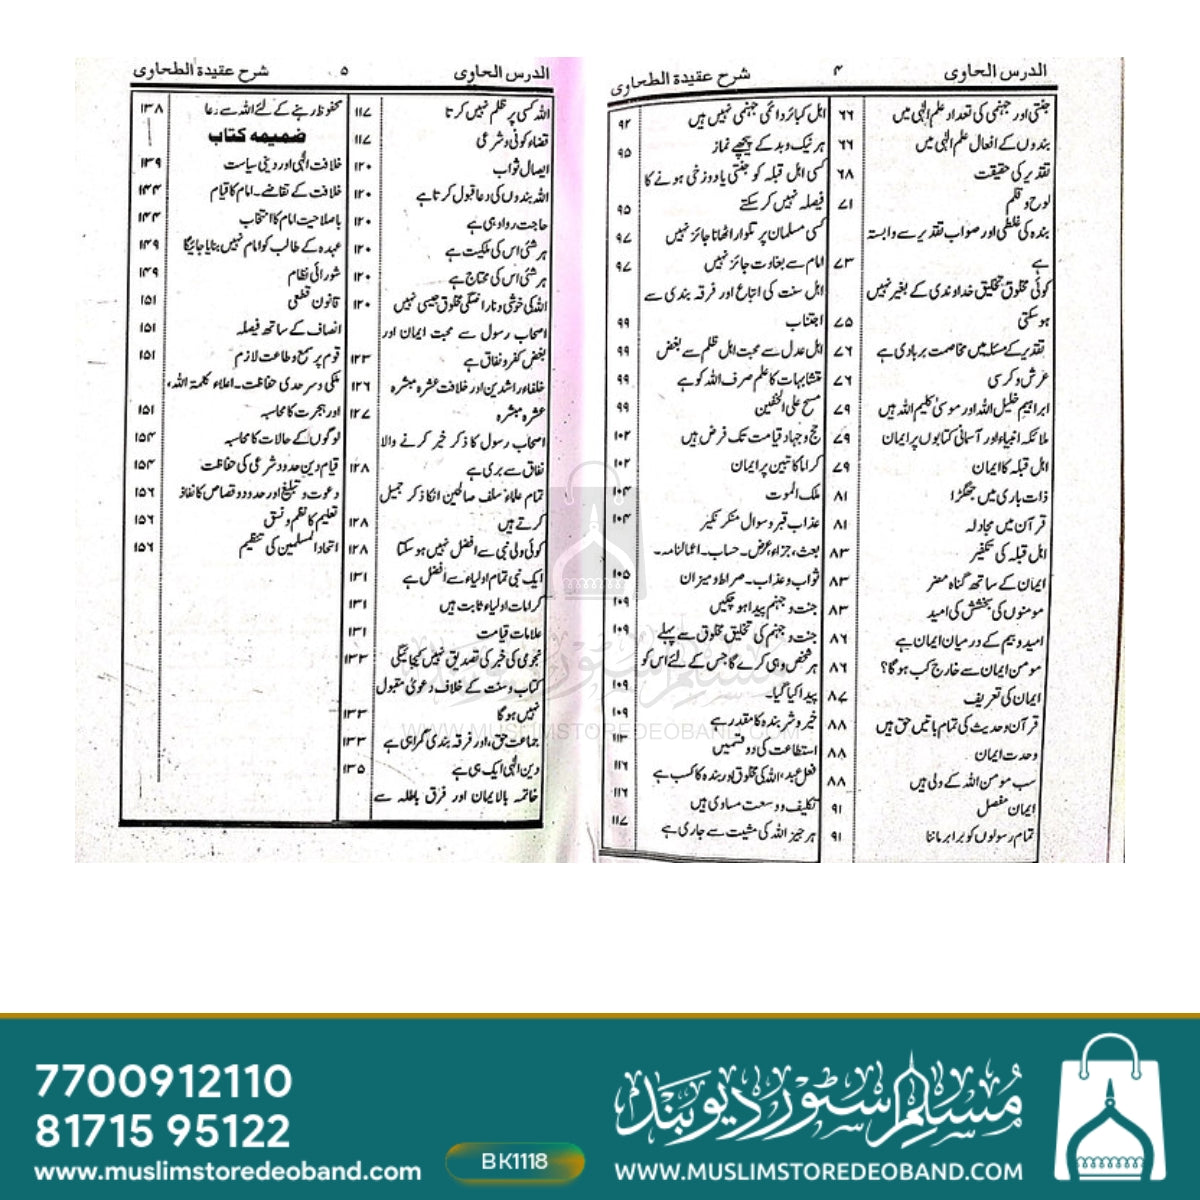 الدرس الحاوی ۴ شرح عقیدۃ الطحاوی
جنتی اور جہنمی کی تعداد علم الٰہی میں ۶۶
بندوں کے افعال علم الٰہی میں ۶۶
تقدیر کی حقیقت ۶۸
لوح و قلم ۷۱
بندہ کی غلطی اور صواب تقدیر سے وابستہ
ہے ۷۳
کوئی مخلوق تخلیق خداوندی کے بغیر نہیں
ہو سکتی ۷۵
تقدیر کے مسئلہ میں مخاصمت بربادی ہے ۷۶
عرش و کرسی ۷۶
ابراہیم خلیل اللہ اور موسیٰ کلیم اللہ ہیں ۷۹
ملائکہ انبیاء اور آسمانی کتابوں پر ایمان ۷۹
اہل قبلہ کا ایمان ۷۹
ذات باری میں جھگڑا ۸۱
قرآن میں مجادلہ ۸۱
اہل قبلہ کی تکفیر ۸۳
ایمان کے ساتھ گناہ مضر ۸۳
مومنوں کی بخشش کی امید ۸۳
امید و بیم کے درمیان ایمان ہے ۸۶
مومن ایمان سے خارج کب ہوگا؟ ۸۶
ایمان کی تعریف ۸۷
قرآن و حدیث کی تمام باتیں حق ہیں ۸۸
وحدت ایمان ۸۸
سب مومن اللہ کے ولی ہیں ۸۸
ایمان مفصل ۹۱
تمام رسولوں کو برابر ماننا ۹۱
اہل کبائر دائمی جہنمی نہیں ہیں ۹۴
ہر نیک و بد کے پیچھے نماز ۹۵
کسی اہل قبلہ کو جنتی یا دوزخی ہونے کا
فیصلہ نہیں کر سکتے ۹۵
کسی مسلمان پر تلوار اٹھانا جائز نہیں ۹۷
امام سے بغاوت جائز نہیں ۹۷
اہل سنت کی اتباع اور فرقہ بندی سے
اجتناب ۹۹
اہل عدل سے محبت اہل ظلم سے بغض ۹۹
متشابہات کا علم صرف اللہ کو ہے ۹۹
مسح علی الخفین ۹۹
حج و جہاد قیامت تک فرض ہیں ۱۰۲
کراماً کاتبین پر ایمان ۱۰۲
ملک الموت ۱۰۴
عذاب قبر و سوال منکر نکیر ۱۰۴
بعث، جزاء، عرض۔ حساب۔ اعمالنامہ۔
ثواب و عذاب۔ صراط و میزان ۱۰۵
جنت و جہنم پیدا ہو چکیں ۱۰۹
جنت و جہنم کی تخلیق مخلوق سے پہلے ۱۰۹
ہر شخص وہی کرے گا جس کے لئے اس کو
پیدا کیا گیا۔ ۱۰۹
خیر و شر بندہ کا مقدر ہے ۱۰۹
استطاعت کی دو قسمیں ۱۱۳
فعل عبد، اللہ کی مخلوق اور بندہ کا کسب ہے ۱۱۶
تکلیف و وسعت مساوی ہیں ۱۱۶
ہر چیز اللہ کی مشیت سے جاری ہے ۱۱۷
الدرس الحاوی ۵ شرح عقیدۃ الطحاوی
اللہ کسی پر ظلم نہیں کرتا ۱۱۷
قضاء کونی و شرعی ۱۱۷
ایصال ثواب ۱۲۰
اللہ بندوں کی دعا قبول کرتا ہے ۱۲۰
حاجت روا وہی ہے ۱۲۰
ہر شئی اس کی ملکیت ہے ۱۲۰
ہر شئی اس کی محتاج ہے ۱۲۰
اللہ کی خوشی و ناراضگی مخلوق جیسی نہیں ۱۲۰
اصحاب رسول سے محبت ایمان اور
بغض کفر و نفاق ہے ۱۲۳
خلفاء راشدین اور خلافت عشرہ مبشرہ ۱۲۶
عشرہ مبشرہ ۱۲۷
اصحاب رسول کا ذکر خیر کرنے والا
نفاق سے بری ہے ۱۲۸
تمام علماء سلف صالحین انکا ذکر جمیل
کرتے ہیں ۱۲۸
کوئی ولی نبی سے افضل نہیں ہو سکتا ۱۲۸
ایک نبی تمام اولیاء سے افضل ہے ۱۳۱
کرامات اولیاء ثابت ہیں ۱۳۱
علامات قیامت ۱۳۱
نجومی کی خبر کی تصدیق نہیں کیجائیگی ۱۳۳
کتاب و سنت کے خلاف دعویٰ مقبول
نہیں ہوگا ۱۳۳
جماعت حق، اور فرقہ بندی گمراہی ہے ۱۳۳
دین الٰہی ایک ہی ہے ۱۳۵
خاتمہ بالایمان اور فرق باطلہ سے
محفوظ رہنے کے لئے اللہ سے دعا ۱۳۸
ضمیمہ کتاب
خلافت الٰہی اور دینی سیاست ۱۳۹
خلافت کے تقاضے۔ امام کا قیام ۱۴۴
باصلاحیت امام کا انتخاب ۱۴۴
عہدہ کے طالب کو امام نہیں بنایا جائیگا ۱۴۹
شورائی نظام ۱۴۹
قانون قطعی ۱۵۱
انصاف کے ساتھ فیصلہ ۱۵۱
قوم پر سمع و طاعت لازم ۱۵۱
ملکی و سرحدی حفاظت۔ اعلاء کلمۃ اللہ،
اور ہجرت کا محاسبہ ۱۵۱
لوگوں کے حالات کا محاسبہ ۱۵۴
قیام دین حدود شرعی کی حفاظت ۱۵۴
دعوت و تبلیغ اور حدود و قصاص کا نفاذ ۱۵۶
تعلیم کا نظم و نسق ۱۵۶
اتحاد المسلمین کی تنظیم ۱۵۶
مسلم سٹور دیوبند
WWW.MUSLIMSTOREDEOBAND.COM
7700912110
81715 95122
www.muslimstoredeoband.com
BK1118
مسلم سٹور دیوبند
WWW.MUSLIMSTOREDEOBAND.COM